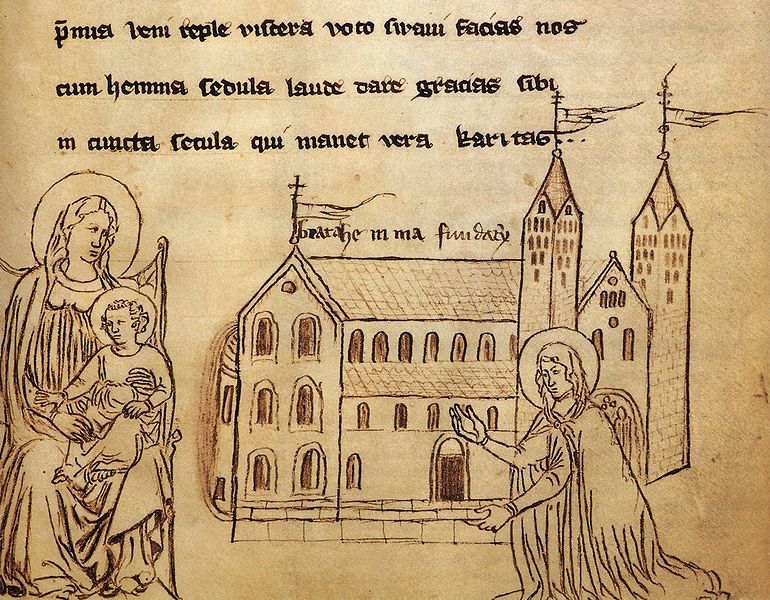 p̄mia veni reple viscera voto suaui facias nos
cum hemma sedula laude dare gracias sibi
in cuncta secula qui manet vera karitas...
beata hemma